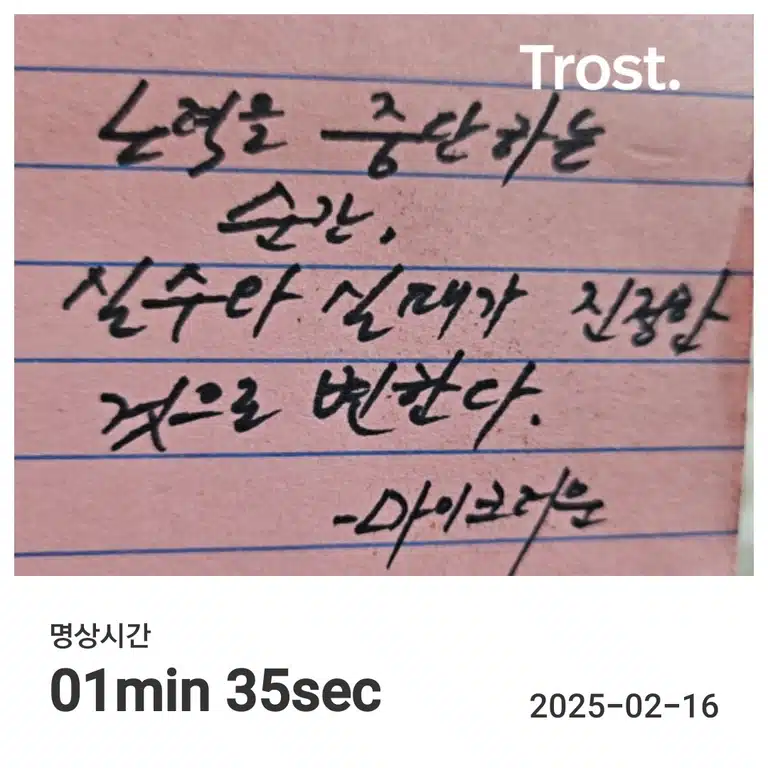 Trost.
노력을 중단하는
순간,
실수와 실패가 진정한
것으로 변한다.
-마이크러운
명상시간
01min 35sec
2025-02-16